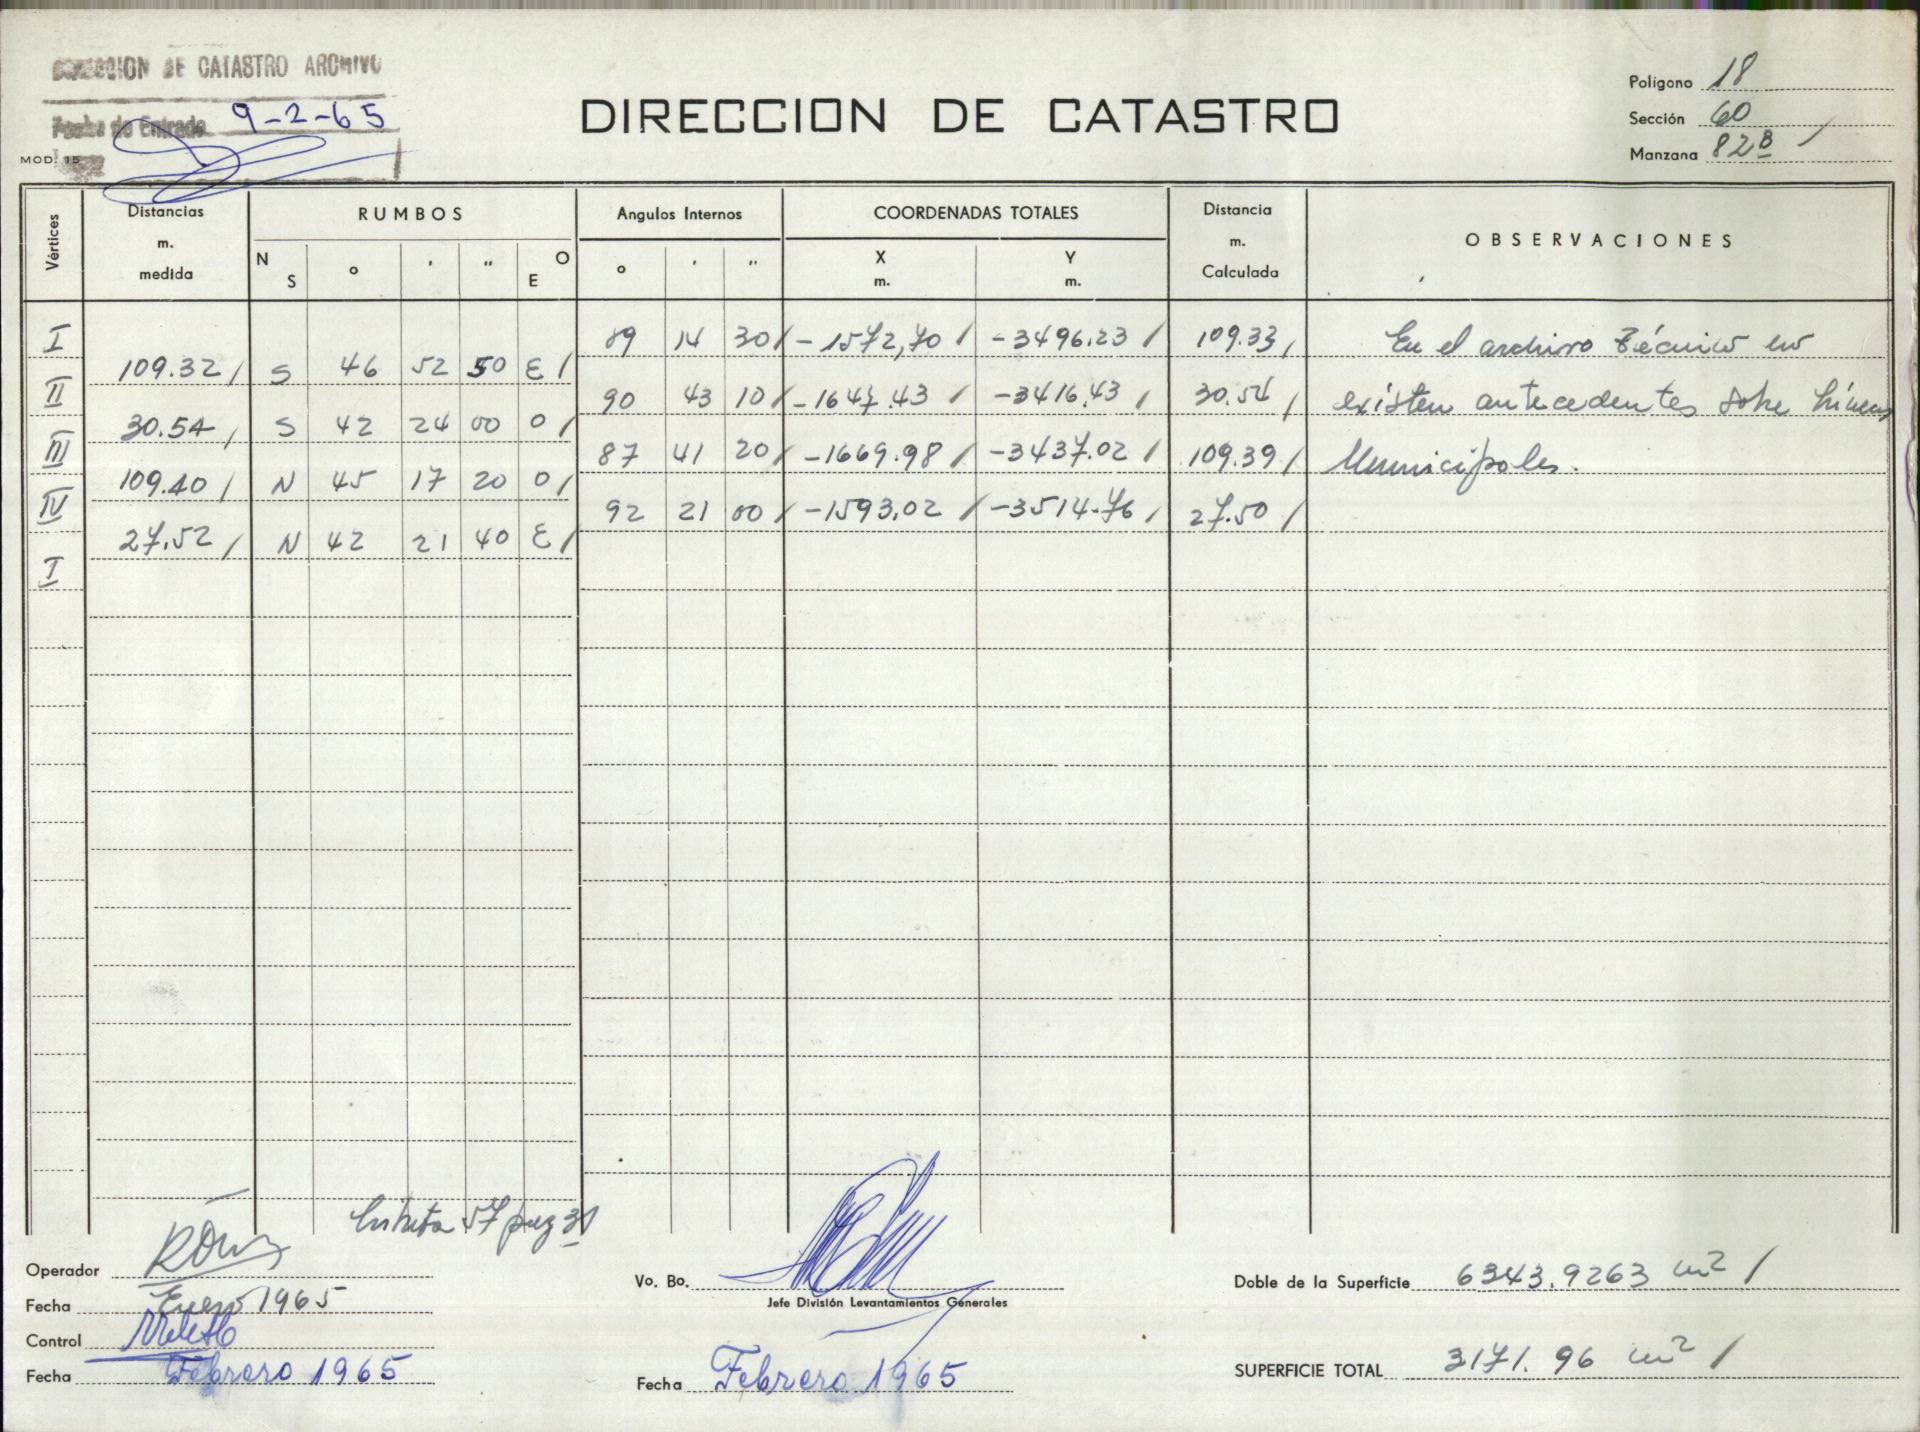 DIRECCION DE CATASTRO ARCHIVO
Fecha de Entrada 9-2-65
MOD. 15
DIRECCION DE CATASTRO
Polígono 18
Sección 60
Manzana 82B
Vértices
Distancias m. medida
RUMBOS
N S ° ' " O E
Angulos Internos
° ' "
COORDENADAS TOTALES
X m. Y m.
Distancia m. Calculada
OBSERVACIONES
I 89 14 30 -1572,70 -3496.23 109.33
109.32 S 46 52 50 E
II 90 43 10 -1647.43 -3416.43 30.54
30.54 S 42 24 00 O
III 87 41 20 -1669.98 -3437.02 109.39
109.40 N 45 17 20 O
IV 92 21 00 -1593.02 -3514.76 27.50
27.52 N 42 21 40 E
I
En el archivo Técnico no
existen antecedentes sobe líneas
Municipales.
Libreta 57 pag 31
Operador
Fecha Enero 1965
Control
Fecha Febrero 1965
Vo. Bo.
Jefe División Levantamientos Generales
Fecha Febrero 1965
Doble de la Superficie 6343.9263 m2
SUPERFICIE TOTAL 3171.96 m2